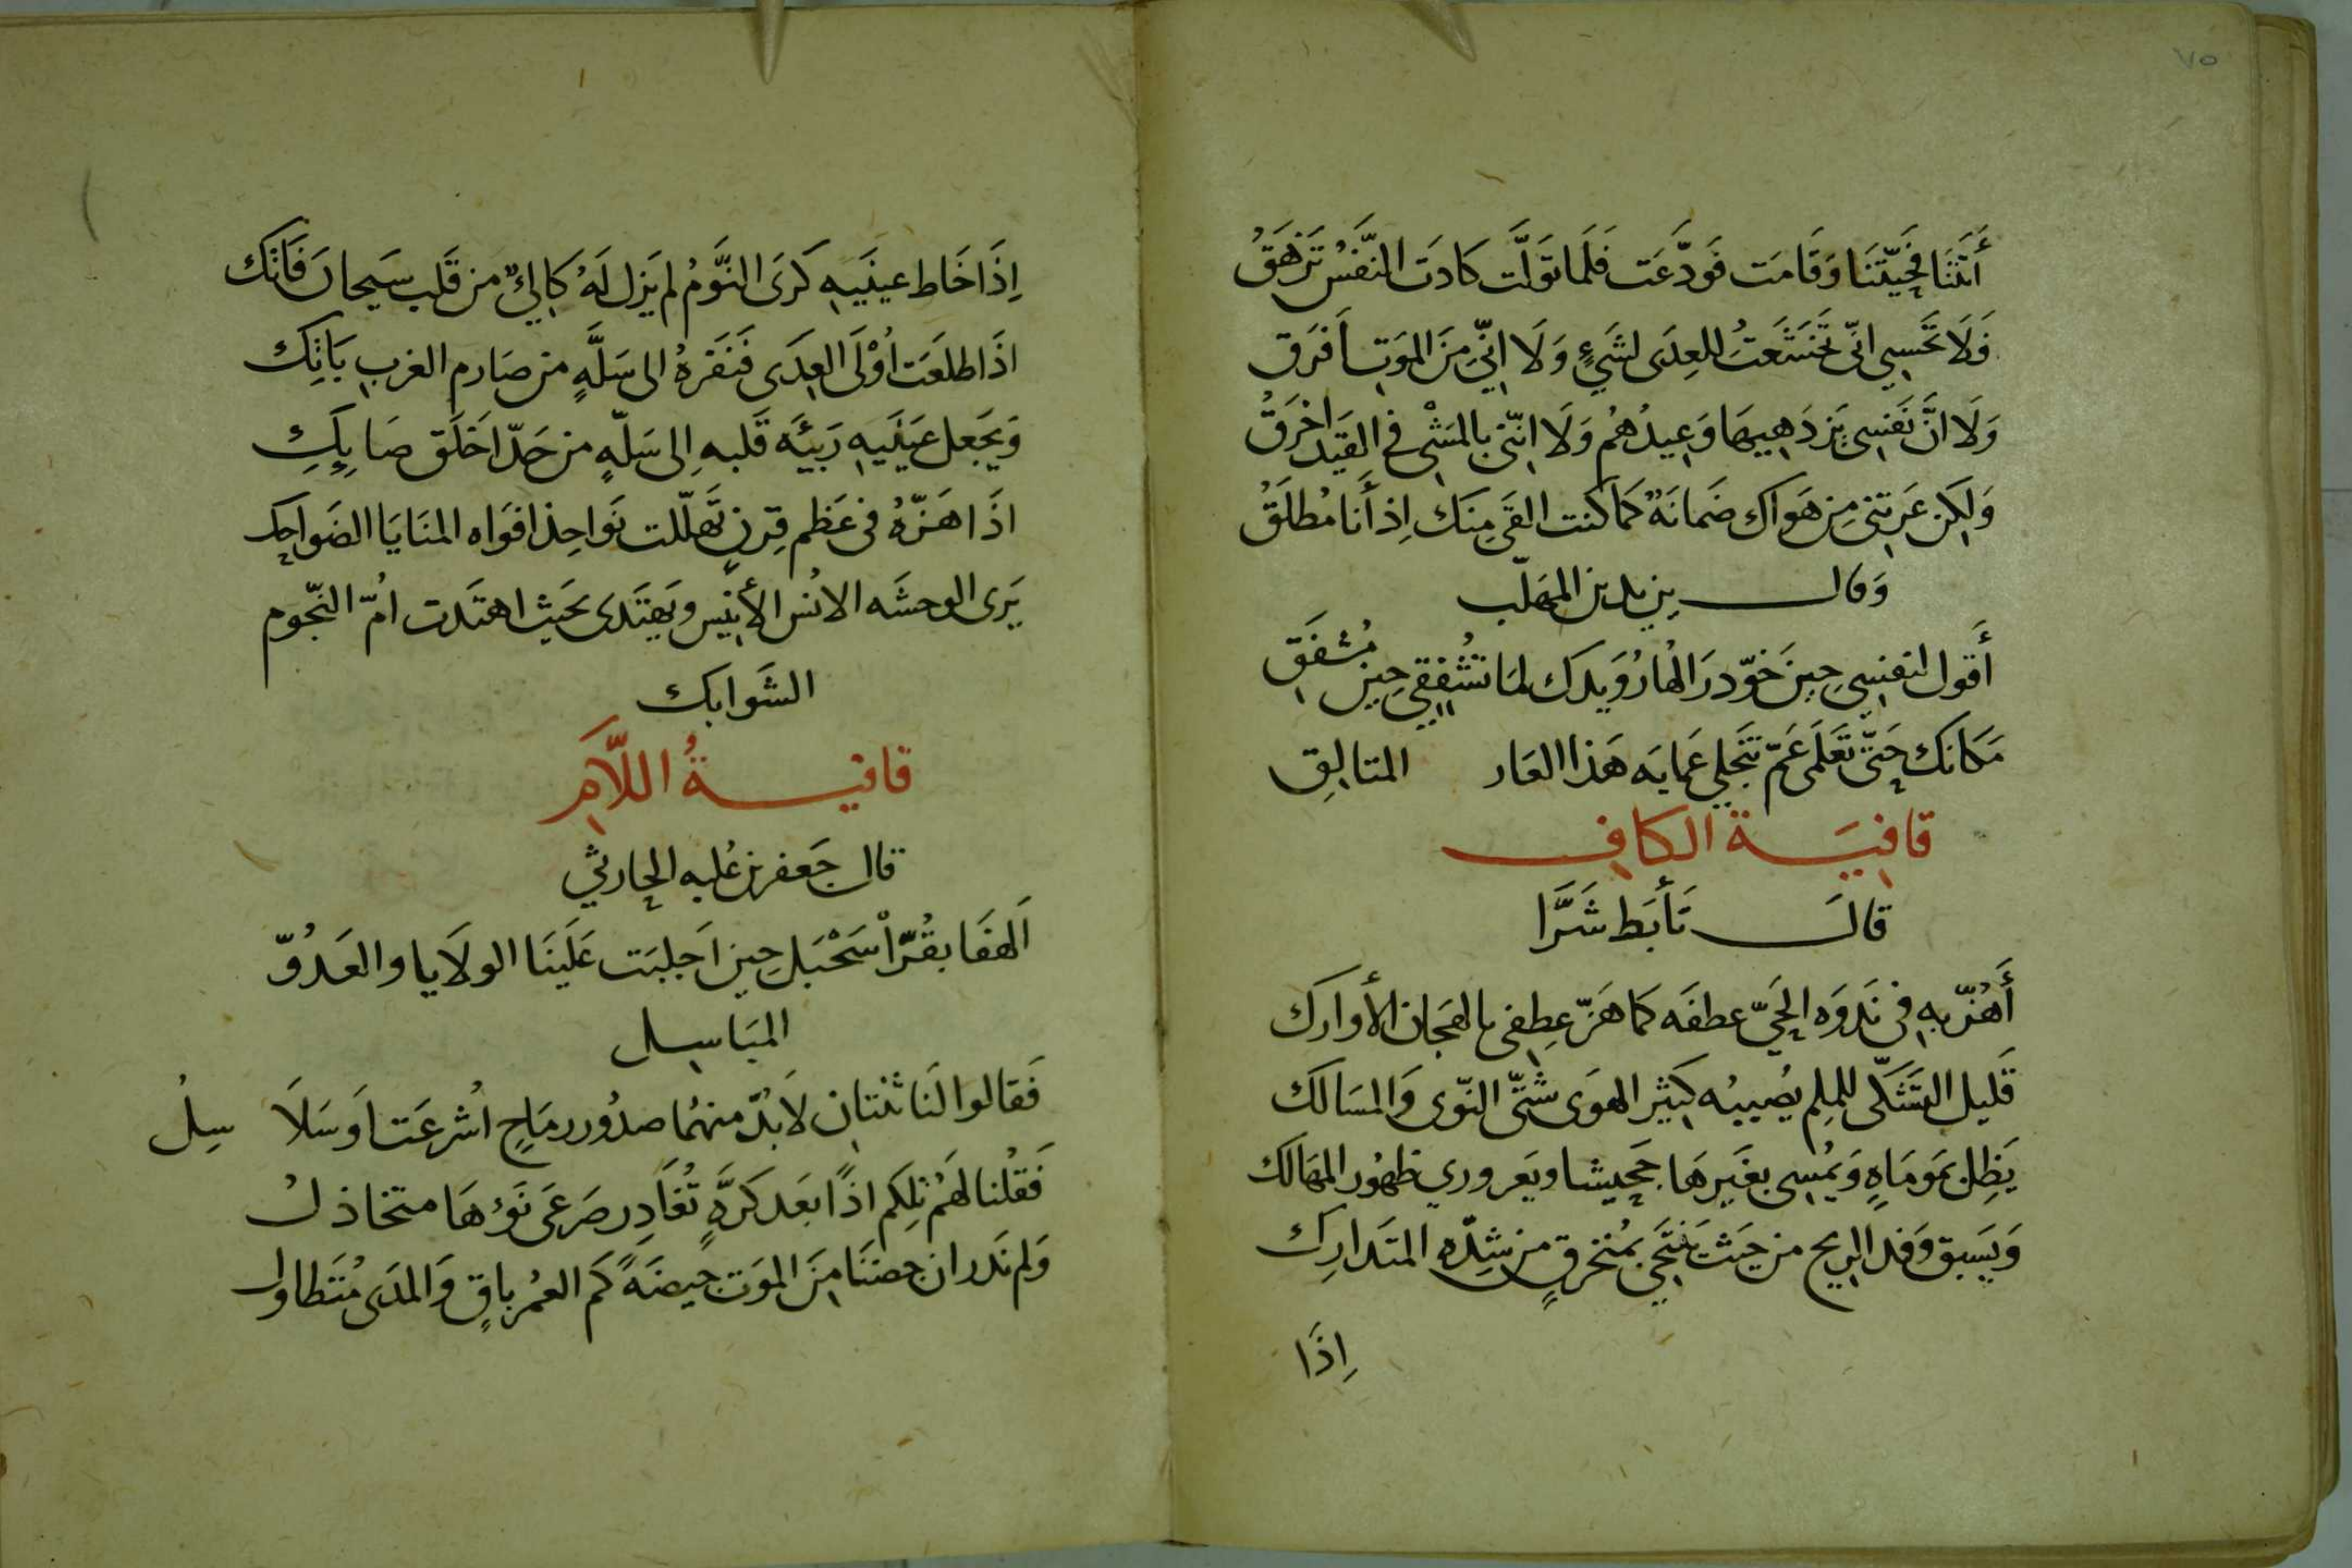 ٧٥
أَتَتْنَا فَحَيَّتْنَا وَقَامَت فَوَدَّعَت فَلَمَا تَوَلَّت كَادَت النَّفسُ تَزهَقُ
فَلَا تَحسِبِي انّي تَخَشَّعتُ للعِدَى لشَيءٍ وَلَا انِّي مِنَ المَوتِ أَفرَق
وَلَا انَّ نَفسِي يَزدَهِيهَا وَعِيدُهُم وَلَا انّني بالمَشْي في القَيد اخرَقُ
وَلكِن عَرتني مِن هَوَاكِ ضَمانَةٌ كَمَا كنت القَى مِنكِ اِذ أَنا مُطلَقُ
وَقال يزيد بن المهَلّب
أَقول لنفسِي حِينَ خَوّد رَالُها رُوَيدَك لمَا تُشفِقِي حِين مُشفَق
مَكانَك حَتّى تَعلَمي عَمّ تَنجَلي عَمايَه هَذا العَار المتالِق
قافِيَة الكافِ
قالَ تَأَبَط شَرَّا
أَهُزّ بهِ في نَدوَه الحَيّ عطفَه كَما هَزّ عِطفِي بالهجَان الأوارك
قَليل التَشَكّي للمُلِم يُصِيبُه كَثير الهوَى شَتّى النّوى وَالمسَالك
يَظِل بمَومَاةٍ وَيُمسِي بغَيرهَا جَحيشا ويَعروري ظهُور المهَالك
وَيَسبق وَفد الريح من حَيث يَنتَحِي بمُنخرقٍ من شِدّهِ المتَدارِك
اِذَا
اِذَا خَاط عينَيهِ كَرَى النَّومُ لم يَزل لَهُ كَاليٌ من قَلب سَيحانَ فَاتك
اذَا طلعَت اُوْلَى العِدَى فَنَفرهُ الى سَلَّهٍ من صَارم الغربِ بَاتِك
وَيَجعل عَينَيهِ رَبيئَه قَلبهِ اِلى سَلّهٍ من حَدّ اخلَق صَايِكِ
اذَا هَزّهُ في عَظم قِرنٍ تَهلّلت نَواجِذ افوَاه المنَايَا الضَواحِك
يَرى الوحشَه الانُس الأنِيس ويَهتَدى بحَيث اهتَدت امُّ النّجُوم
الشَوابك
قافيةُ اللّامِ
قال جَعفر بن عُلبه الحارِثي
اَلهفَا بقُرّاْ سَحْبَلِ حِين اَجلبَت عَلَينَا الولَايا والعَدُوّ
المبَاسِل
فَقالوا لَنا ثنتانِ لَابُدّ منهمُا صدُور رمَاحٍ اُشرعَت اَو سَلَا سِلُ
فَقُلنا لهَمُ تِلكم اذًا بَعدَ كَرَّهٍ تُغَادِر صَرعَى نَوْءهَا متخاذلُ
وَلم نَدر ان جِضنَا مِنَ المَوت جَيضَةً كَم العُمْر باقٍ وَالمدَى مُتَطاول